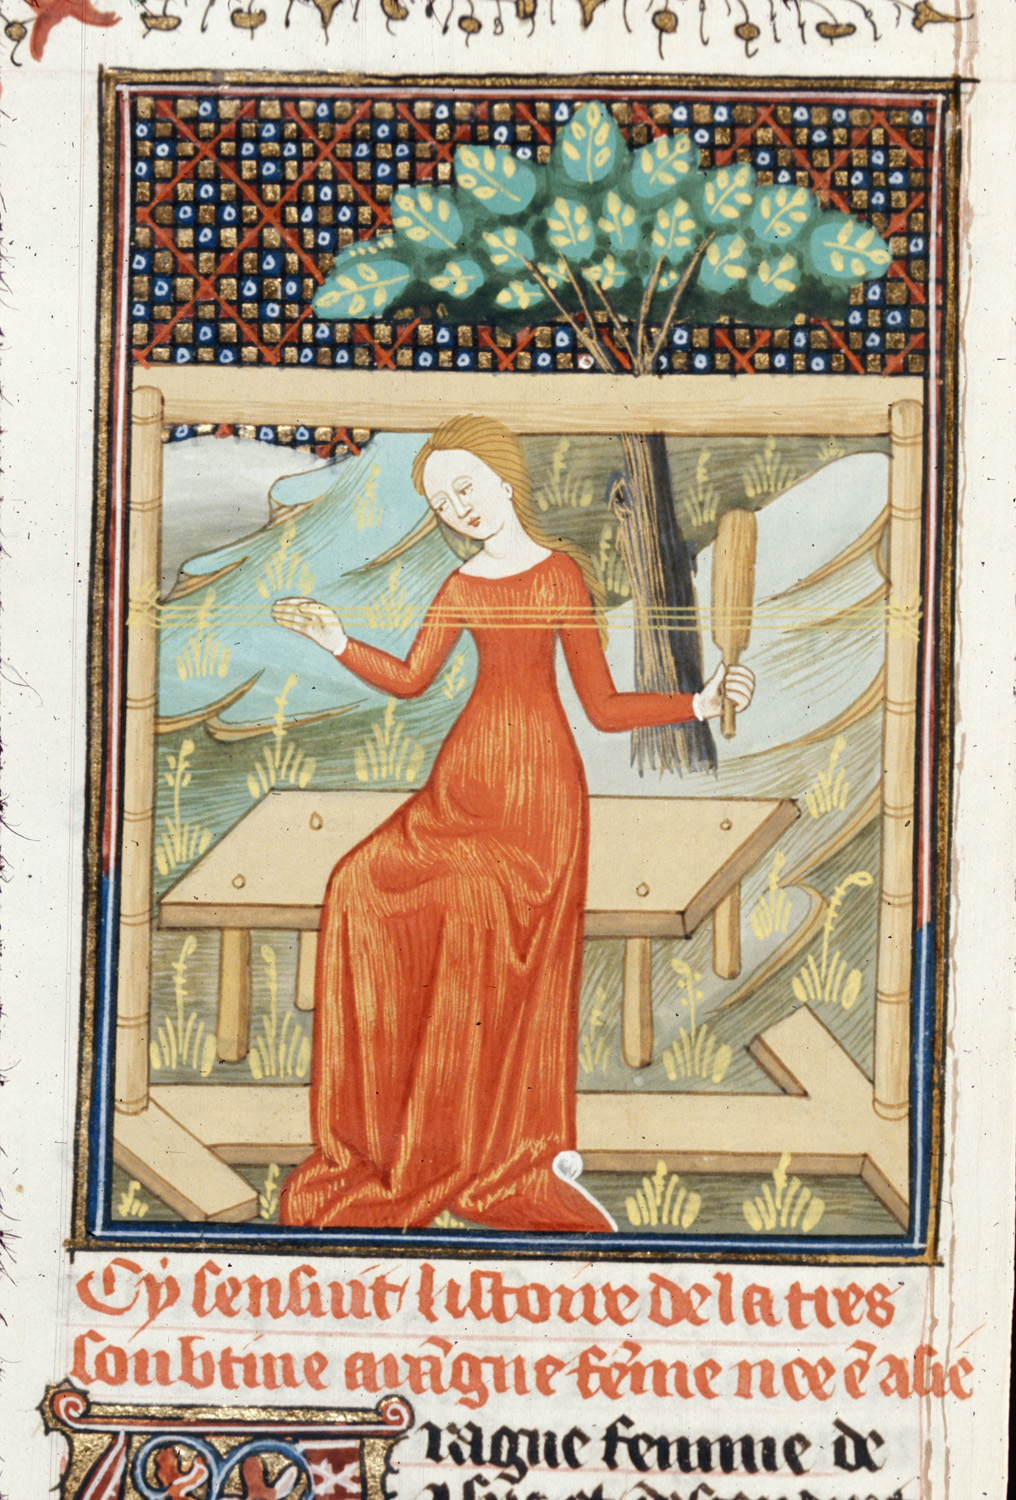 Cy sensuit listoire de la tres
soubtine araᷠgne fēme nee ē asie
ragne femme de